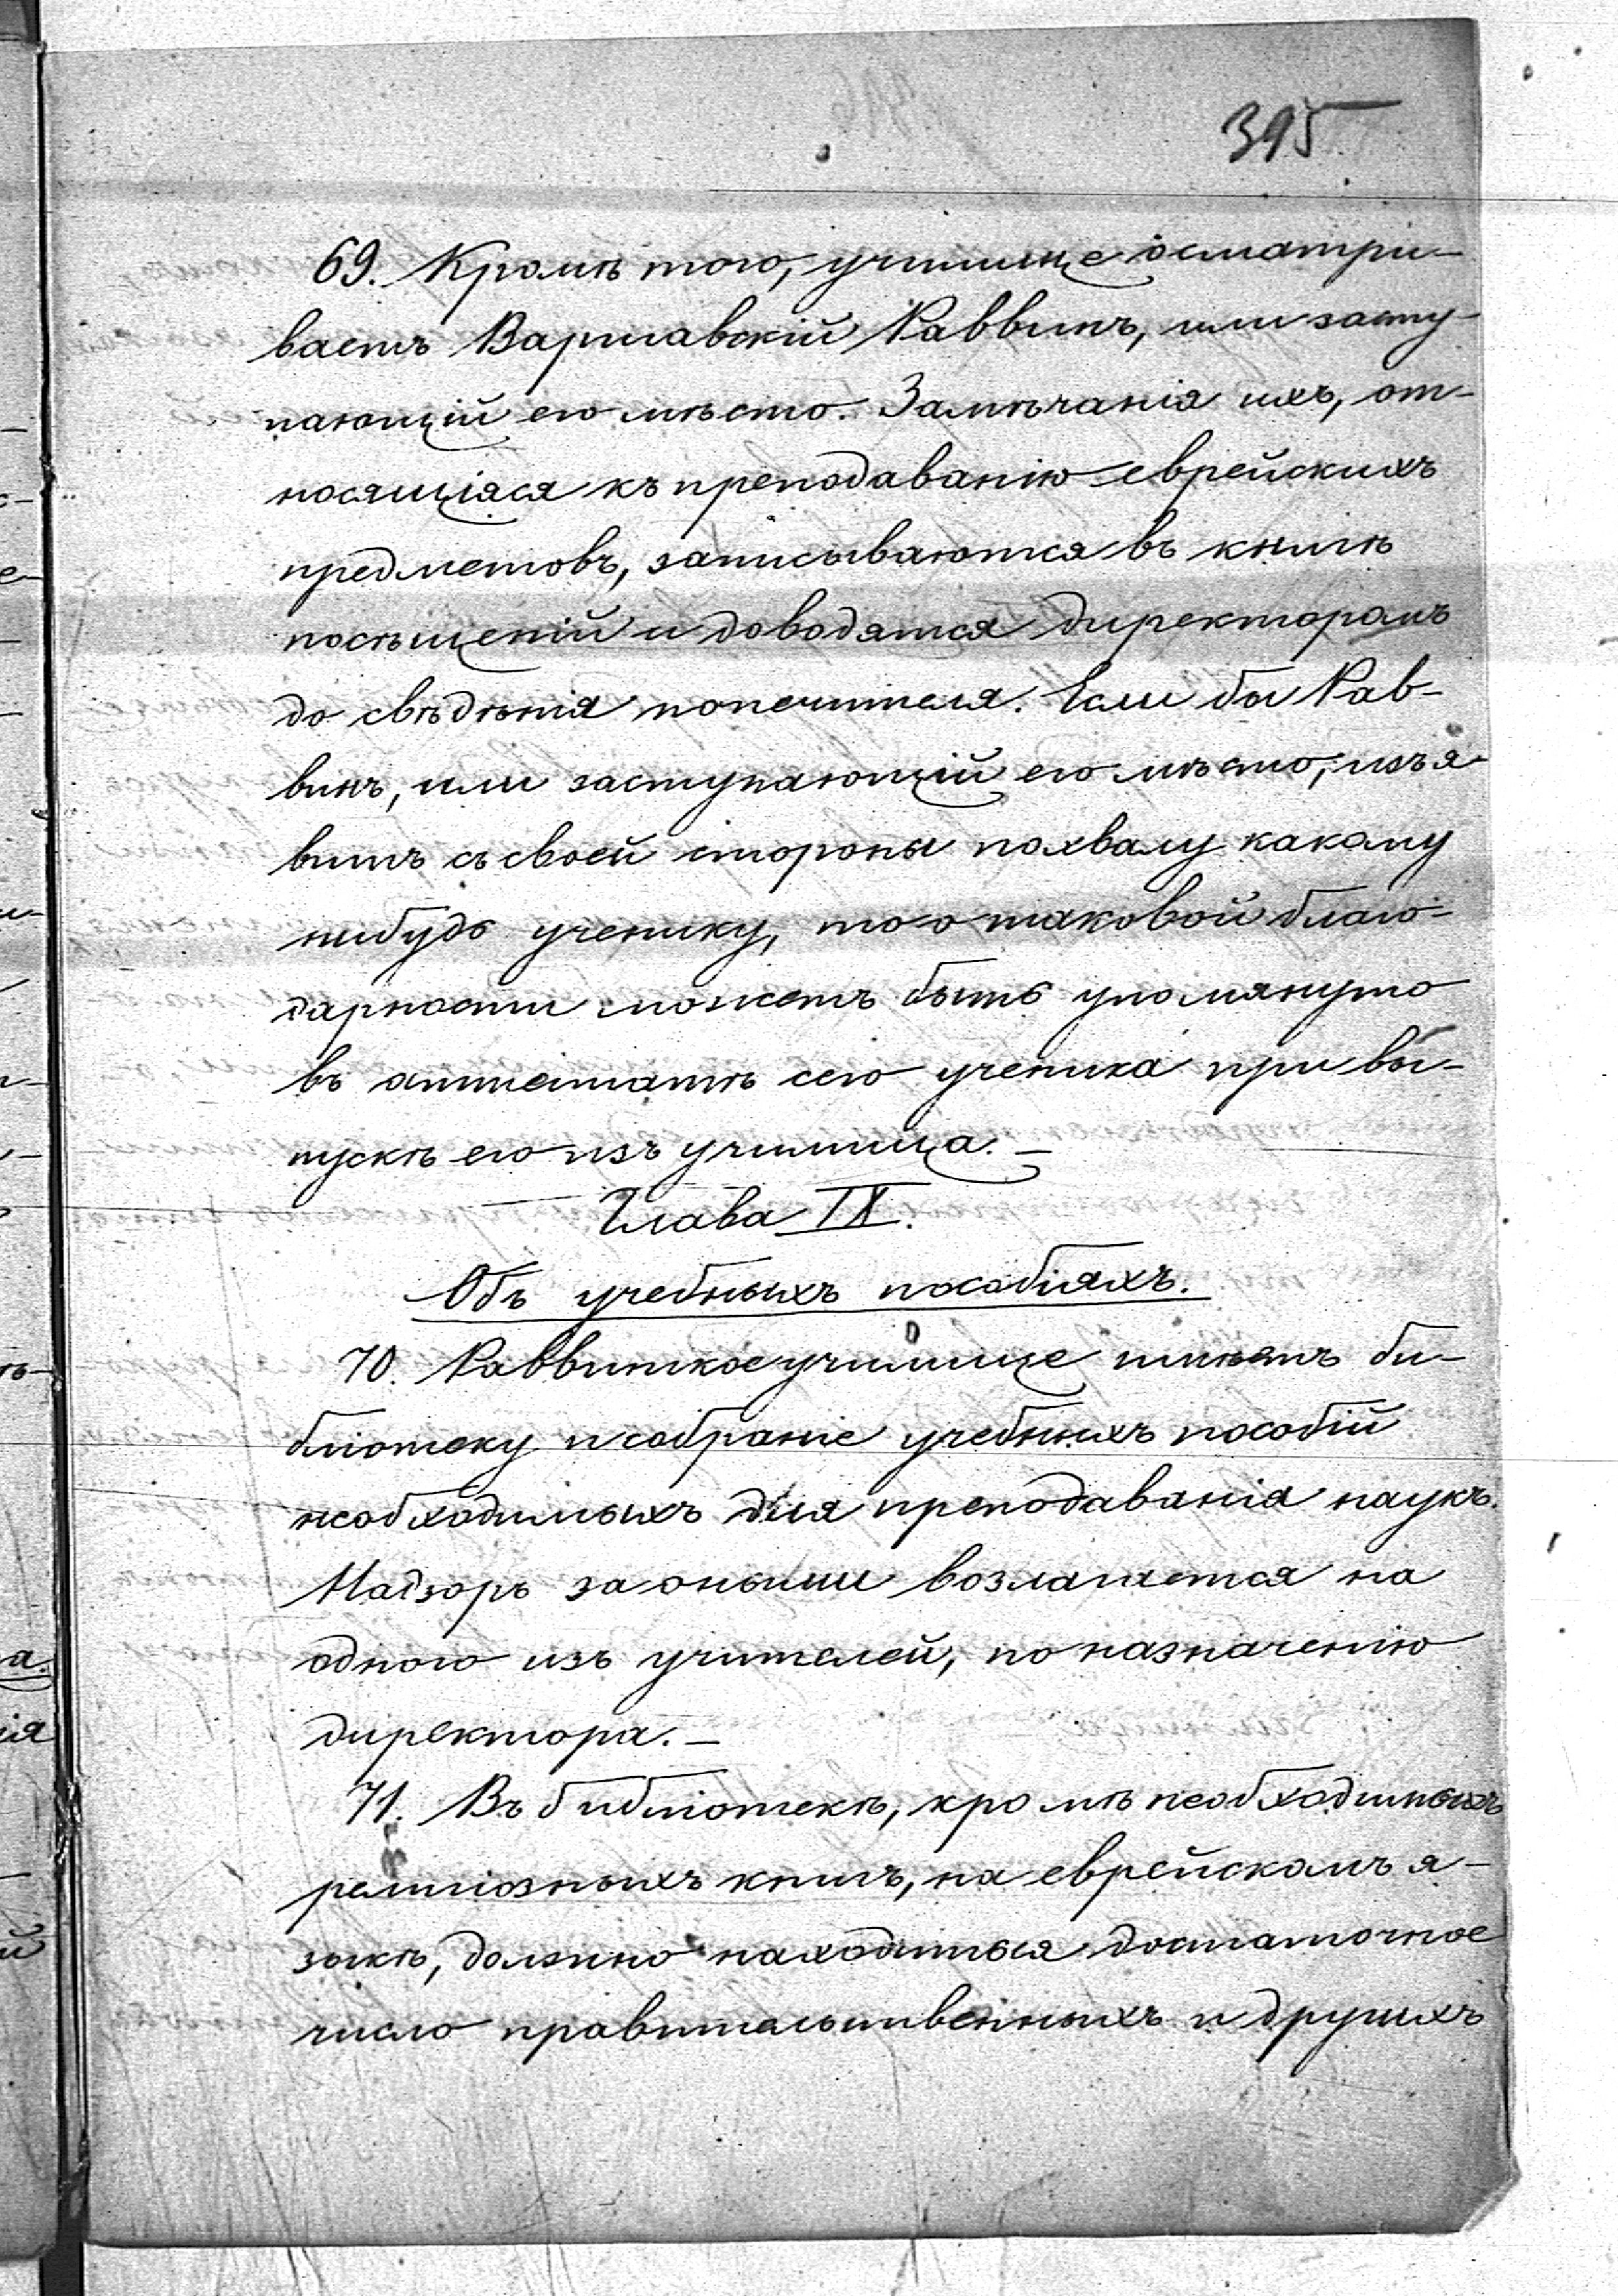 395
69. Кромѣ того, училище осматри-
ваетъ Варшавскій Раввинъ, или засту-
пающій его мѣсто. Замѣчанія ихъ, от-
носящіяся къ преподаванію еврейскихъ
предметовъ, записываются въ книгѣ
посѣщеній и доводятся директоромъ
до свѣдѣнія попечителя. Если бы Рав-
винъ, или заступающій его мѣсто, изъя-
витъ съ своей стороны похвалу какому
нибудь ученику, то о таковой благо-
дарности можетъ быть упомянуто
въ аттестатѣ сего ученика при вы-
пускѣ его изъ училища. –
Глава IX.
Объ учебныхъ пособіяхъ.
70. Раввинское училище имѣетъ би-
бліотеку и собраніе учебныхъ пособій
необходимыхъ для преподаванія наукъ.
Надзоръ за оными возлагается на
одного изъ учителей, по назначенію
директора. –
71. Въ библіотекѣ, кромѣ необходимыхъ
религіозныхъ книгъ, на еврейскомъ я-
зыкѣ, должно находиться достаточное
число правительственныхъ и другихъ